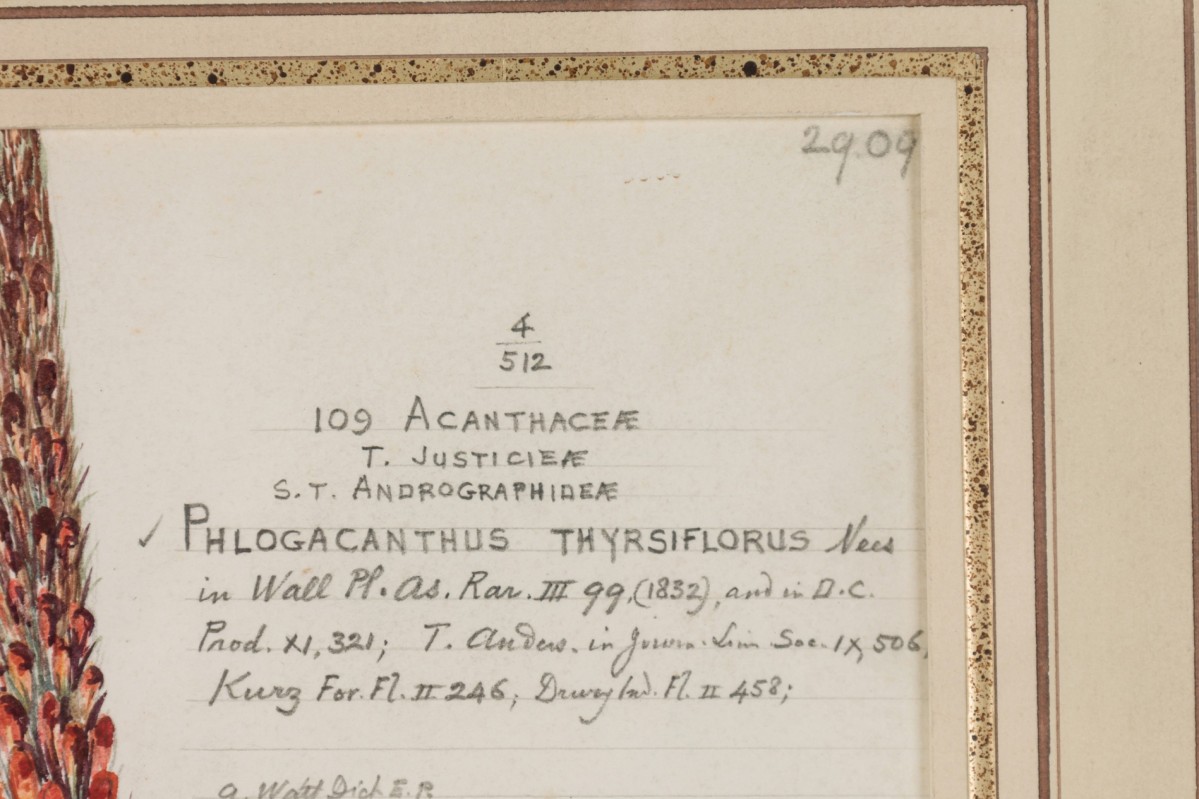 29.09
4
512
109 ACANTHACEÆ
T. JUSTICIEÆ
S.T. ANDROGRAPHIDEÆ
✓ PHLOGACANTHUS THYRSIFLORUS Nees
in Wall Pl. As. Rar. III 99, (1832), and in D.C.
Prod. XI, 321; T. Anders. in Journ. Linn Soc. IX, 506,
Kurz For. Fl. II 246; Drury Ind. Fl. II 458;
Watt Dict E.P.